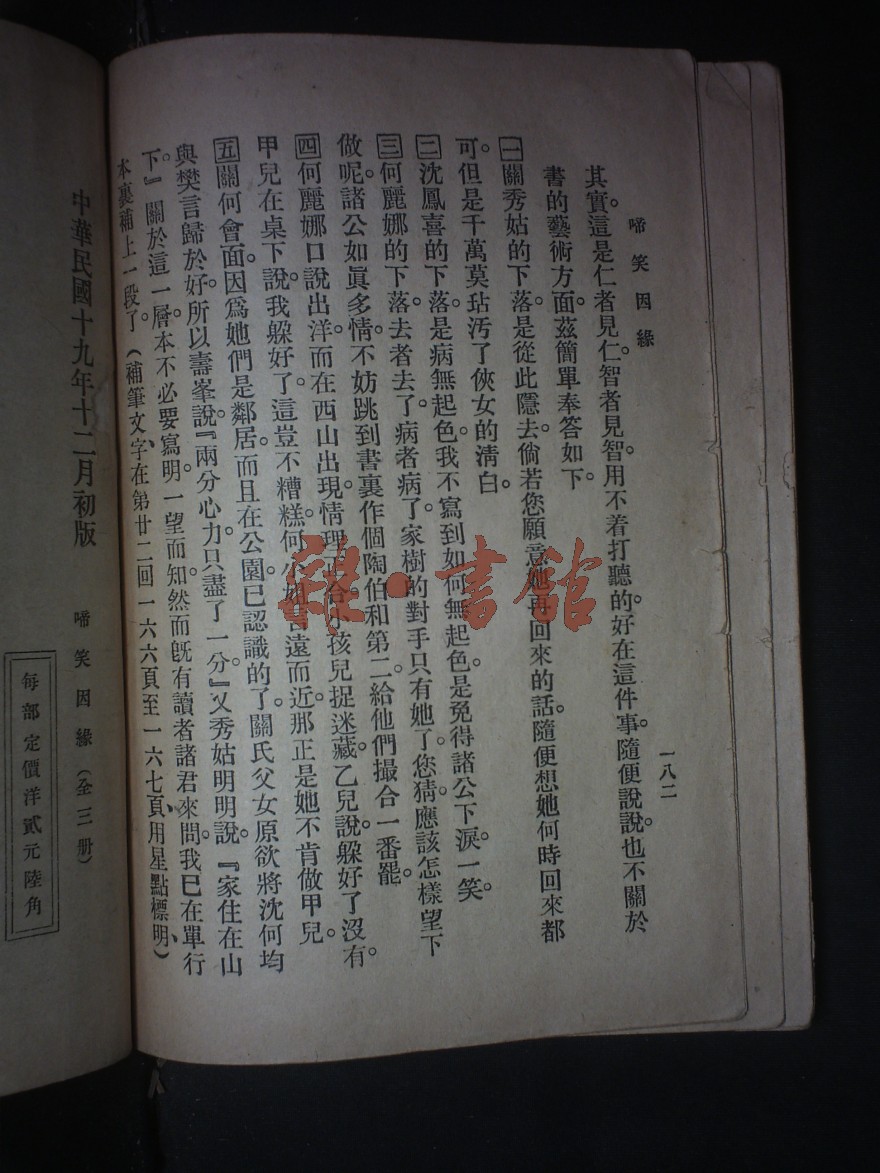 啼笑因緣
一八二
其實。這是仁者見仁。智者見智。用不着打聽的。好在這件事。隨便說說。也不關於
書的藝術方面。茲簡單奉答如下。
一關秀姑的下落。是從此隱去。倘若您願意她再回來的話。隨便想她何時回來都
可。但是千萬莫玷汚了俠女的淸白。
二沈鳳喜的下落。是病無起色。我不寫到如何無起色。是免得諸公下淚。一笑。
三何麗娜的下落。去者去了。病者病了。家樹的對手只有她了。您猜。應該怎樣望下
做呢。諸公如眞多情。不妨跳到書裏作個陶伯和第二。給他們撮合一番罷。
四何麗娜口說出洋。而在西山出現。情理正合。小孩兒捉迷藏。乙兒說。躱好了沒有。
甲兒在桌下說。我躱好了。這豈不糟糕。何小姐言遠而近。那正是她不肯做甲兒。
五關何會面。因爲她們是鄰居。而且在公園已認識的了。關氏父女原欲將沈何均
與樊言歸於好。所以壽峯說。『兩分心力。只盡了一分。』又秀姑明明說。『家住在山
下。』關於這一層。本不必要寫明。一望而知。然而旣有讀者諸君來問。我已在單行
本裏補上一段了。(補筆文字、在第廿二回一六六頁至一六七頁、用星點標明、)
中華民國十九年十二月初版
啼笑因緣(全三册)
每部定價洋貳元陸角
雜·書館